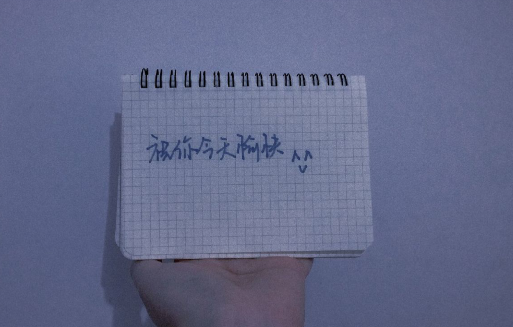 祝你今天愉快 ^^